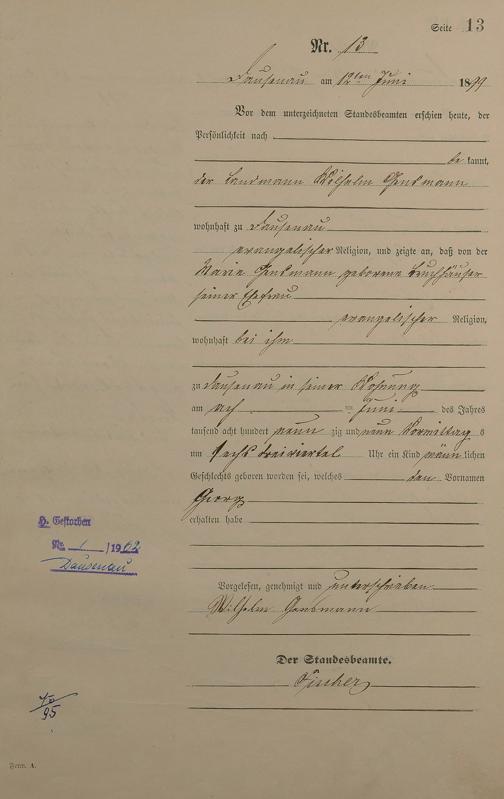 Seite 13
Nr. 13
Dausenau am 12ten Juni 1899
Vor dem unterzeichneten Standesbeamten erschien heute, der
Persönlichkeit nach
be kannt,
der Landmann Wilhelm
wohnhaft zu Dausenau
evangelischer Religion, und zeigte an, daß von der
Marie geborene
seiner Ehefrau
evangelischer Religion,
wohnhaft bei ihm
zu Dausenau in seiner Wohnung
am Juni des Jahres
tausend acht hundert neun zig und neun Vormittag s
um sechs dreiviertel Uhr ein Kind männ lichen
Geschlechts geboren worden sei, welches den Vornamen
Georg
erhalten habe
H. Gestorben
Nr. 1 /1962
Dausenau
Vorgelesen, genehmigt und unterschrieben
Wilhelm
Der Standesbeamte.
Fischer
95
Form. A.